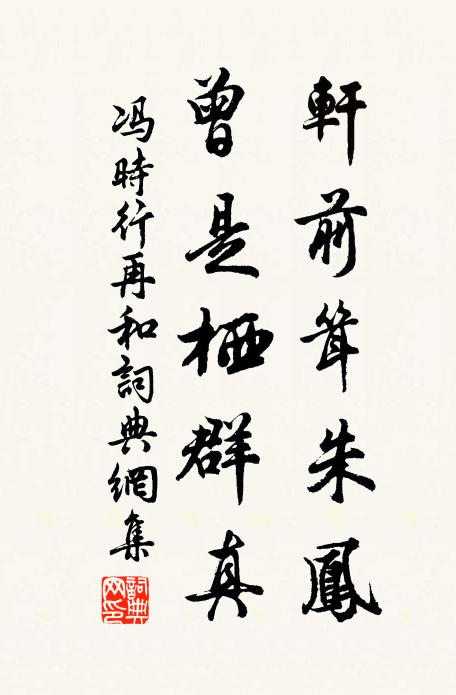 軒前耸朱鳳
曾是栖群真
冯時行再和詞典網集
詞典
网印